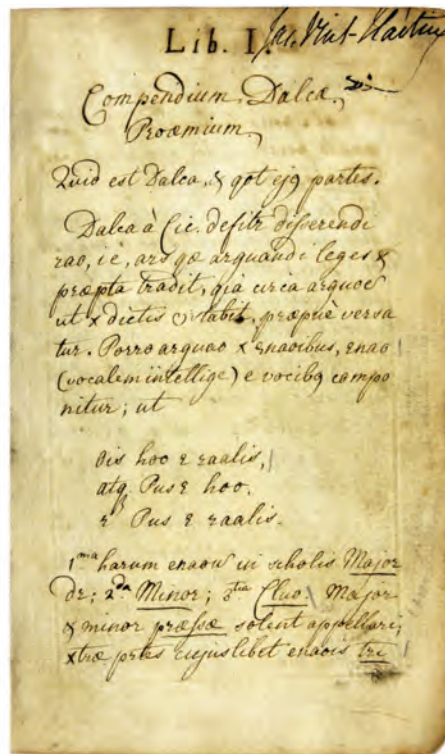 Lib. I.
Compendium Dalcæ
Proæmium
Quid est Dalca, & qot ejꝯ partes.
Dalca à Cic. defitr disserendi
rao, i è, ars qæ arguandi leges &
præpta tradit, qia circa
ut x dictis præpuè versa
tur. Porro arguao x enaoibus, enao
(vocalem intellige) e vocibꝯ compo
nitur; ut
ois hoo e raalis,
atq Pus e hoo.
Pus e raalis.
1ma harum enaou in scholis Major
dr; 2da Minor; 3tia Cluo. Major
& minor præssæ solent appellari;
xtræ prtes cujuslibet enaois tri